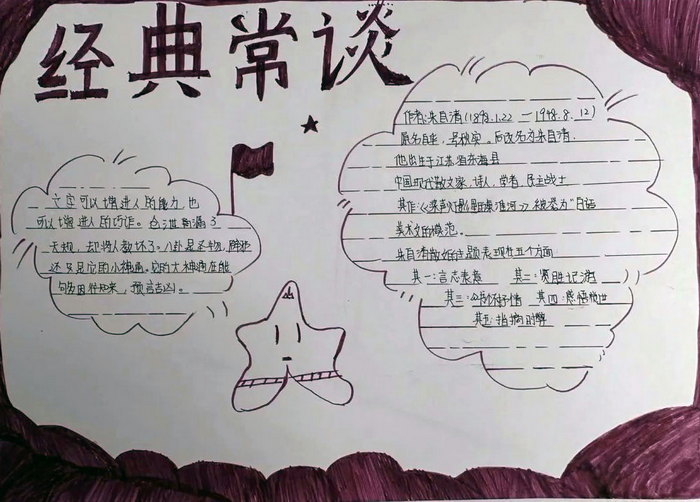 经典常谈
它固可以增进人的能力,也
可以增进人的巧诈。仓泄漏了
天机,却将人教坏了。八卦是圣物,辟邪
还只是它的小神通。它的大神通在能
够因往知来,预言吉凶。
作者:朱自清(1898.1.22—1948.8.12)
原名自华,号秋实。后改名为朱自清,
他出生于江苏省东海县
中国现代散文家、诗人、学者、民主战士
其作《桨声灯影里的秦淮河》被誉为"白话
美术文的模范。
朱自清散文主题表现在五个方面
其一:言志表意 其二:览胜记游
其三: 其四:感悟
其五:指摘时弊